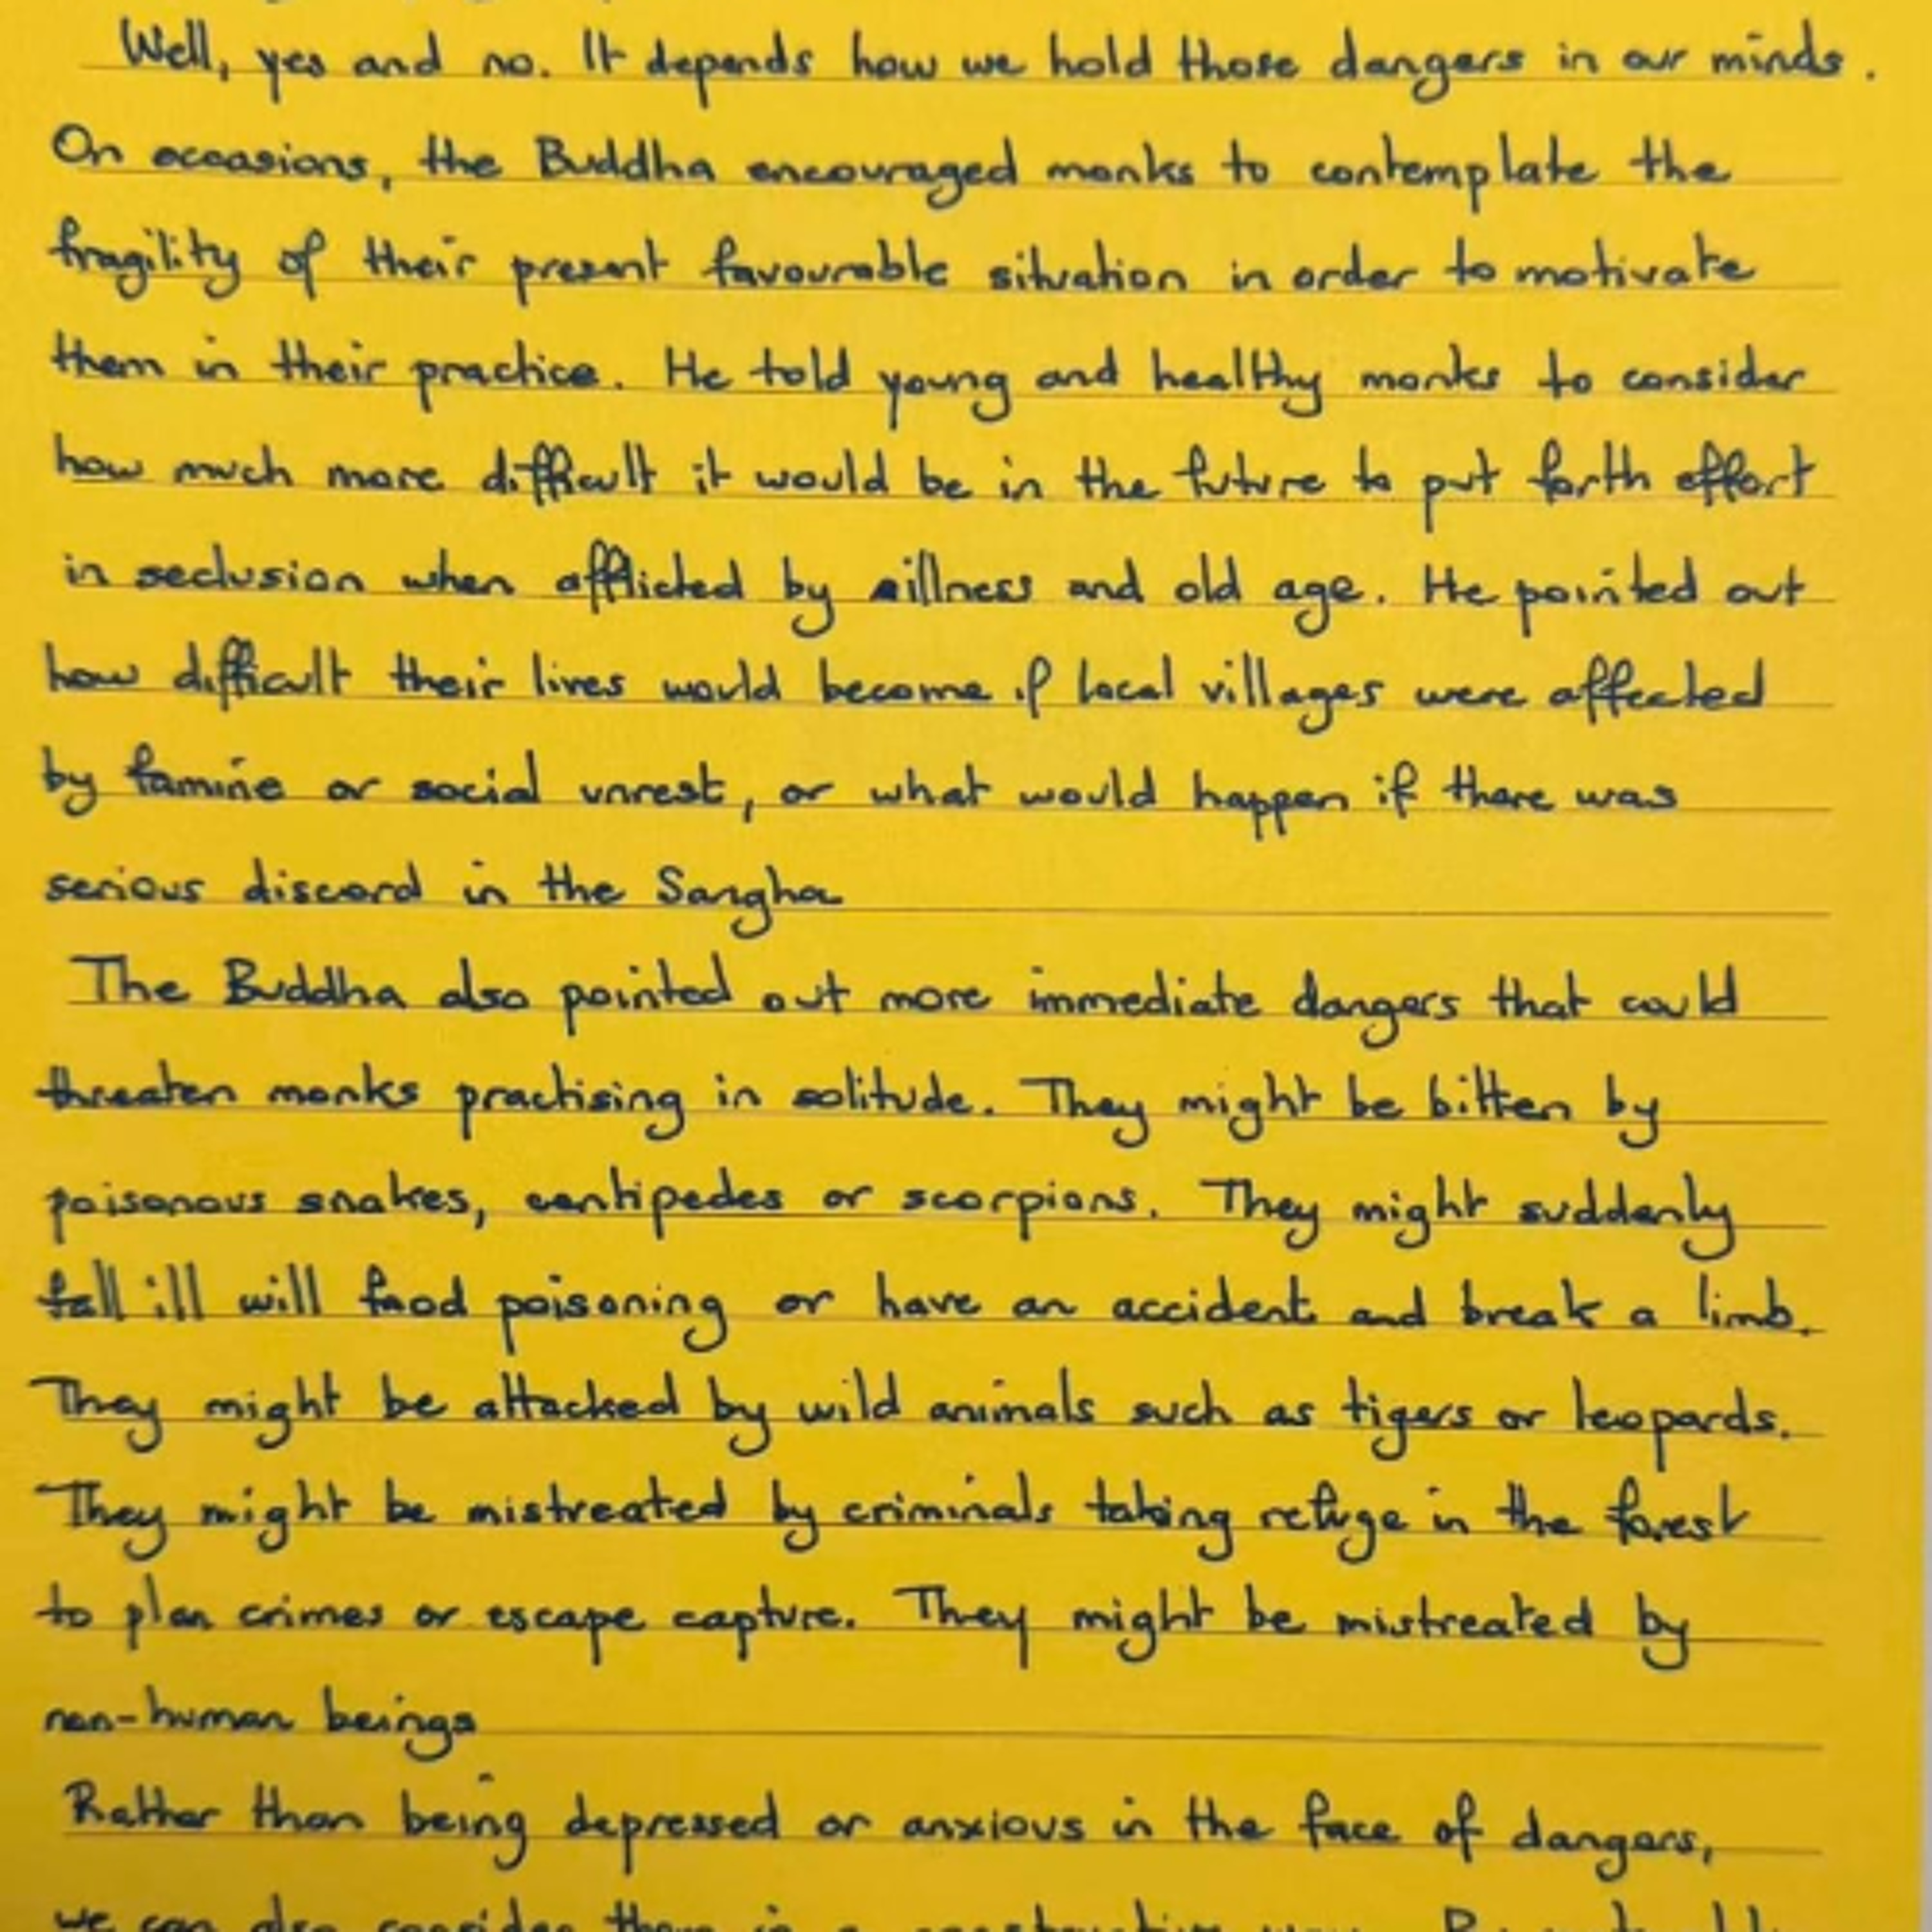 Well, yes and no. It depends how we hold those dangers in our minds.
On occasions, the Buddha encouraged monks to contemplate the
fragility of their present favourable situation in order to motivate
them in their practice. He told young and healthy monks to consider
how much more difficult it would be in the future to put forth effort
in seclusion when afflicted by illness and old age. He pointed out
how difficult their lives would become if local villages were affected
by famine or social unrest, or what would happen if there was
serious discord in the Sangha
The Buddha also pointed out more immediate dangers that could
threaten monks practising in solitude. They might be bitten by
poisonous snakes, centipedes or scorpions. They might suddenly
fall ill will food poisoning or have an accident and break a limb.
They might be attacked by wild animals such as tigers or leopards.
They might be mistreated by criminals taking refuge in the forest
to plan crimes or escape capture. They might be mistreated by
non-human beings
Rather than being depressed or anxious in the face of dangers,
we can also consider them in a constructive way.